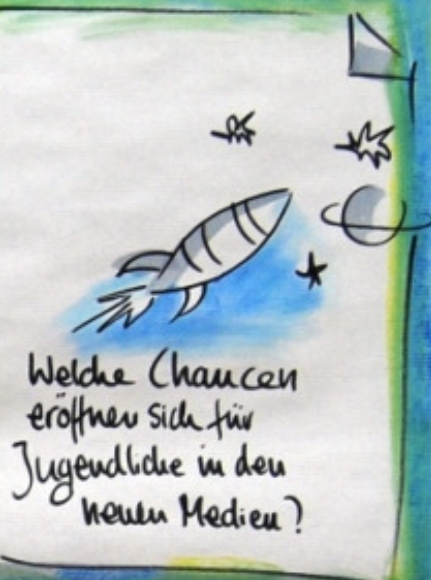 Welche Chancen
eröffnen sich für
Jugendliche in den
neuen Medien?